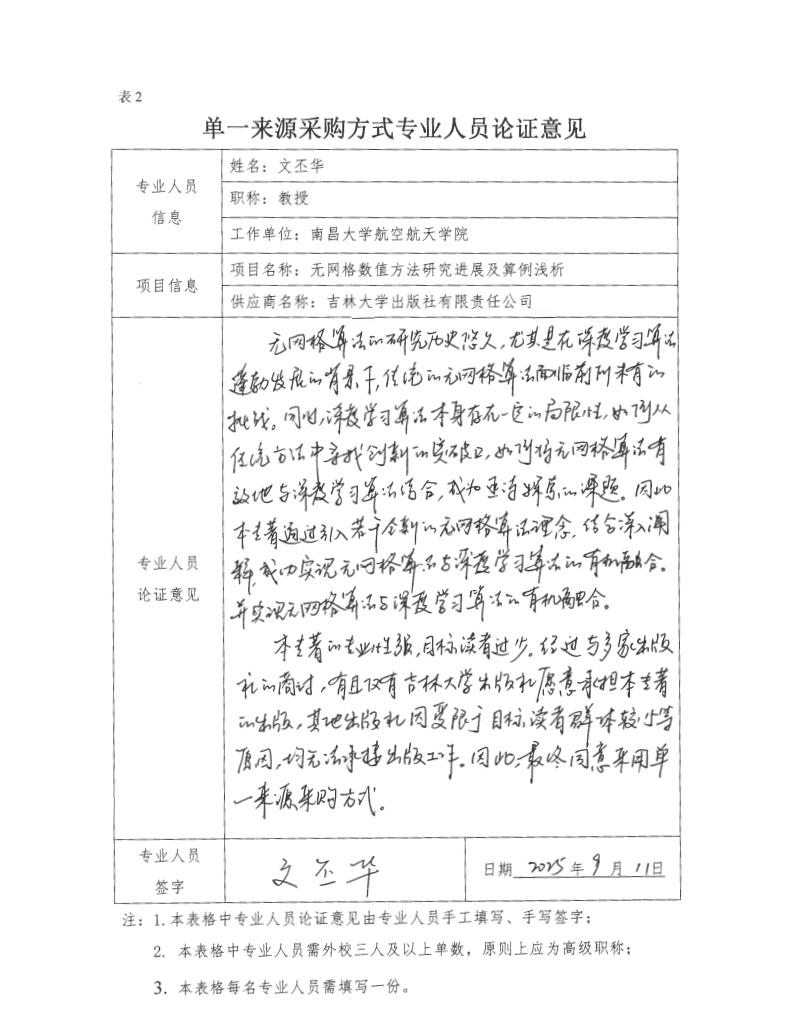 表2
单一来源采购方式专业人员论证意见
专业人员
信息
姓名：文丕华
职称：教授
工作单位：南昌大学航空航天学院
项目信息
项目名称：无网格数值方法研究进展及算例浅析
供应商名称：吉林大学出版社有限责任公司
专业人员
论证意见
无网格算法的研究历史悠久，尤其是在深度学习算法
蓬勃发展的背景下，传统的无网格算法面临前所未有的
挑战。同时，深度学习算法本身存在一定的局限性，如何从
传统方法中寻找创新的突破口，如何将无网格算法有
效地与深度学习算法结合，成为亟待探索的课题。因此
本专著通过引入若干全新的无网格算法理念，结合深入阐
释，成功实现无网格算法与深度学习算法的有机融合。
并实现无网格算法与深度学习算法的有机融合。
本专著的专业性强，目标读者过少。经过与多家出版
社的商讨，有且仅有吉林大学出版社愿意承担本专著
的出版，其他出版社因受限于目标读者群体较少等
原因，均无法承接出版工作。因此，最终同意采用单
一来源采购方式。
专业人员
签字
文丕华
日期 2025年9月11日
注：1.本表格中专业人员论证意见由专业人员手工填写、手写签字；
2. 本表格中专业人员需外校三人及以上单数，原则上应为高级职称；
3. 本表格每名专业人员需填写一份。